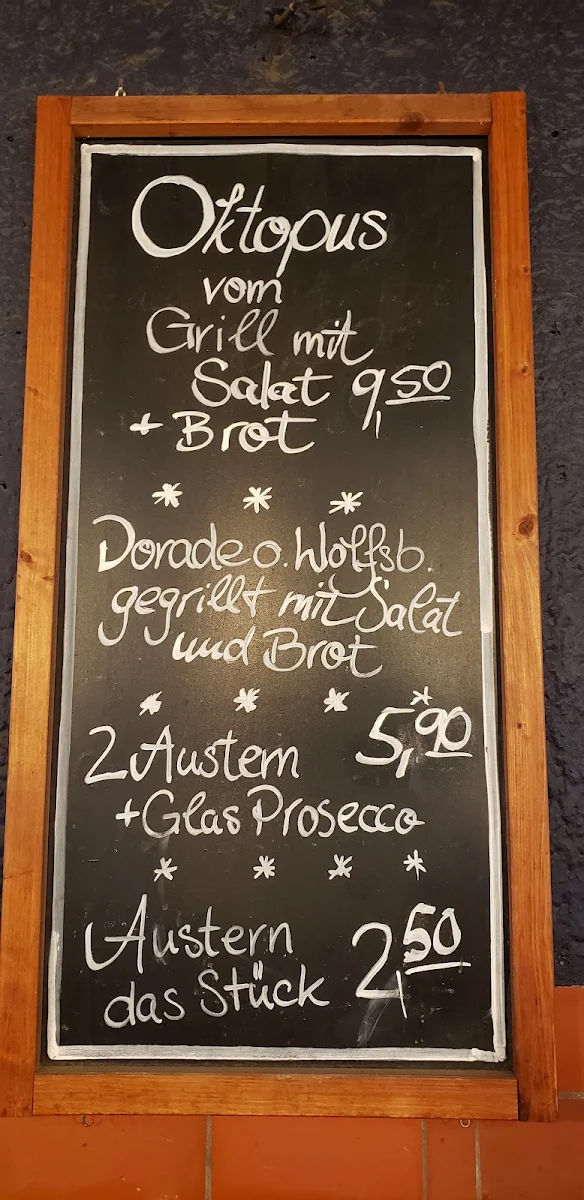 Oktopus
vom
Grill mit
Salat 9,50
+ Brot
* * *
Dorade o. Wolfsb.
gegrillt mit Salat
und Brot
* * * *
2 Austern 5,90
+ Glas Prosecco
* * * *
Austern 2,50
das Stück